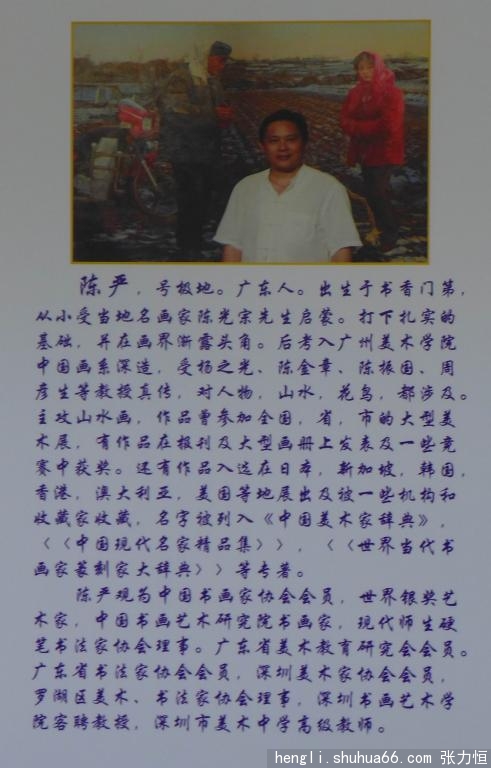 陈严，号极地。广东人。出生于书香门第，
从小受当地名画家陈光宗先生启蒙。打下扎实的
基础，并在画界渐露头角。后考入广州美术学院
中国画系深造，受杨之光、陈金章、陈振国、周
彦生等教授真传，对人物，山水，花鸟，都涉及。
主攻山水画，作品曾参加全国，省，市的大型美
术展，有作品在报刊及大型画册上发表及一些竞
赛中获奖。还有作品入选在日本，新加坡，韩国，
香港，澳大利亚，美国等地展出及被一些机构和
收藏家收藏，名字被列入《中国美术家辞典》，
《〈中国现代名家精品集〉》，《〈世界当代书
画家篆刻家大辞典〉》等专著。
陈严现为中国书画家协会会员，世界银奖艺
术家，中国书画艺术研究院书画家，现代师生硬
笔书法家协会理事。广东省美术教育研究会会员。
广东省书法家协会会员，深圳美术家协会会员，
罗湖区美术、书法家协会理事，深圳书画艺术学
院客聘教授，深圳市美术中学高级教师。
hengli.shuhua66.com 张力恒